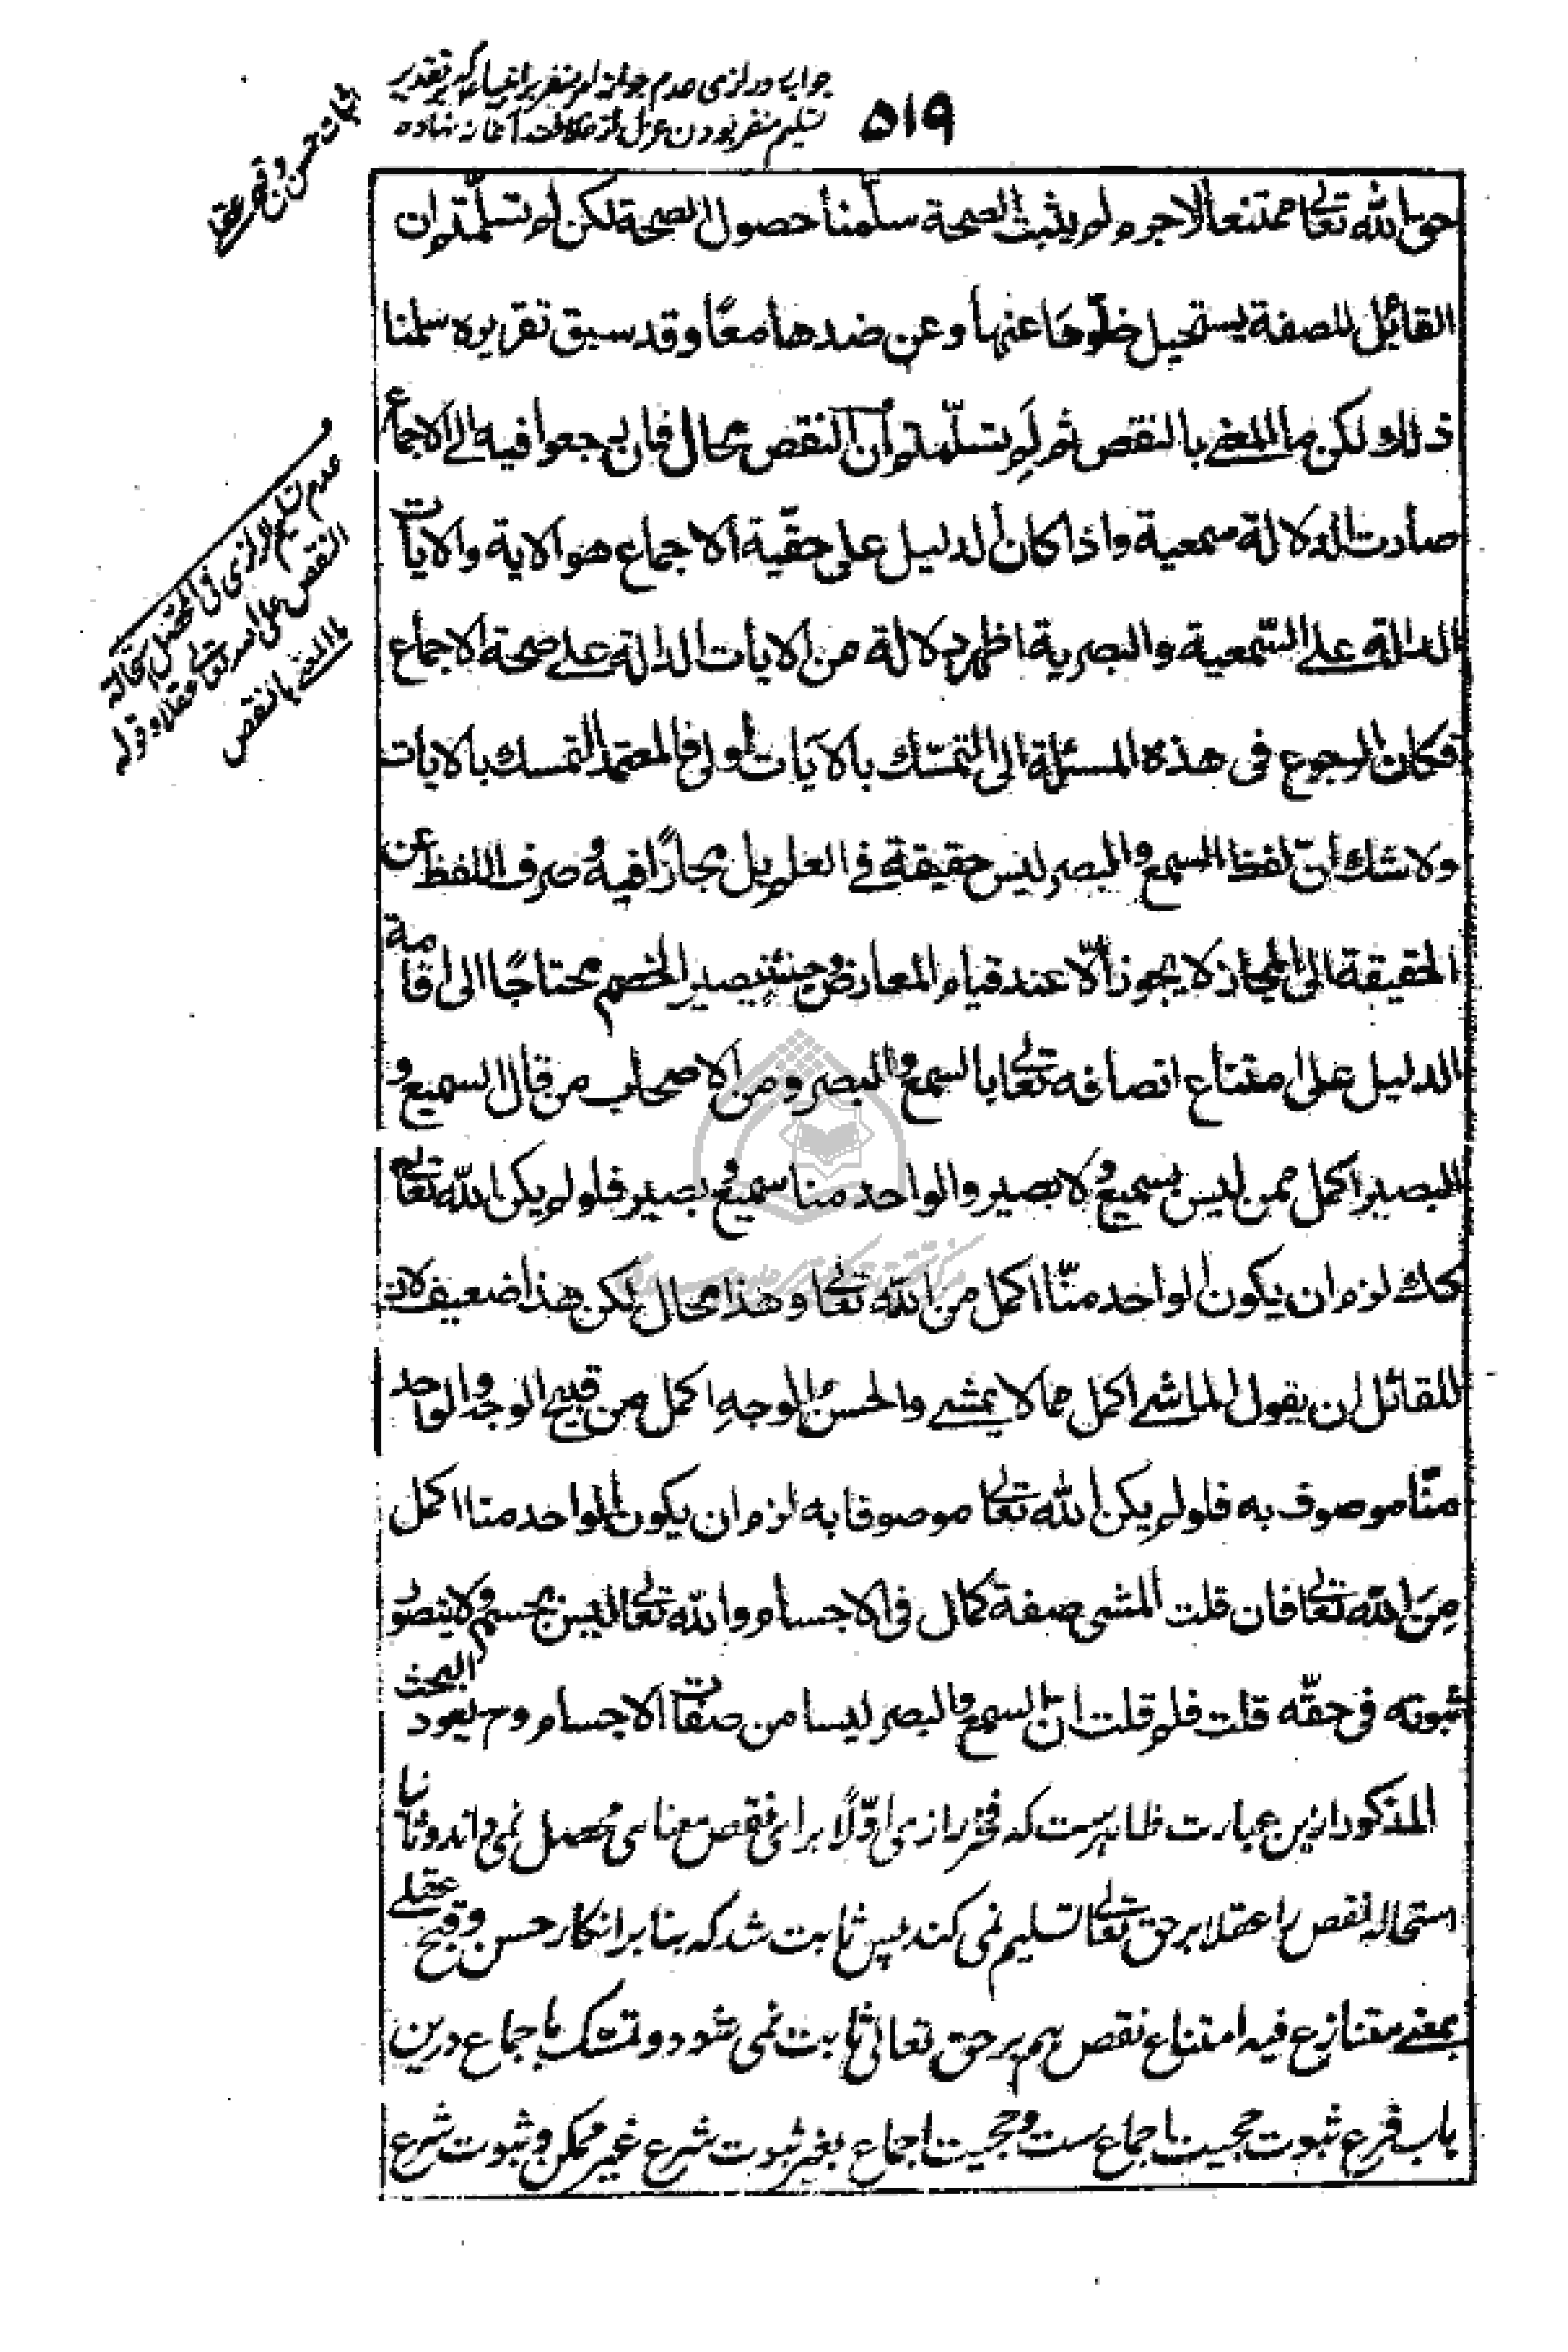 ۵۱۹
جواب رازی عدم جواز امر منفر بر انبیا که بر تقدیر
تسلیم منفر بودن عزل از خلافت آغاز نهاده
اثبات حسن و قبح عقلی
حق الله تعالی ممتنعا لاجرم لم یثبت الصحة سلّمنا حصول الصحة لکن لم تسلّمتم ان
القائل للصفة یستحیل خلوّها عنها و عن ضدها معًا و قد سبق تقریره سلمنا
ذلك لکن ما المعنی بالنقص ثم لِمَ تسلّمتم أن النقص محال فان رجعوا فیه الی الاجماع
صارت الدلالة سمعیة و اذا کان الدلیل علی حقّیة الاجماع هو الایة و الایات
الدالة علی السّمعیة و البصریة اظهر دلالة من الایات الدالة علی صحة الاجماع
فکان الرجوع فی هذه المسئلة الی التمسّك بالآیات أولی فالمعتمد التمسك بالایات
ولا شك انّ لفظ السمع و البصر لیس حقیقة فی العلم بل مجازًا فیه و صرف اللفظ عن
الحقیقة الی المجاز لا یجوز الّا عند قیام المعارض و حینئذٍ یصیر الخصم محتاجًا الی اقامة
الدلیل علی امتناع اتصافه تعالی بالسمع و البصر و من الاصحاب من قال السمیع و
البصیر اکمل ممن لیس بسمیع و لا بصیر و الواحد منا سمیع و بصیر فلو لم یکن الله تعالی
کك لزم ان یکون الواحد منّا اکمل من الله تعالی و هذا محال لکن هذا ضعیف لان
للقائل ان یقول الماشی اکمل مما لا یمشی و الحسن الوجهِ اکمل من قبیح الوجه و الواحد
منّا موصوف به فلو لم یکن الله تعالی موصوفا به لزم ان یکون الواحد منا اکمل
مِنَ الله تعالی فان قلت المشی صفة کمال فی الاجسام و الله تعالی لیس بجسم و لا یتصور
ثبوته فی حقّه قلت فلم قلت انّ السمع و البصر لیسا من صفات الاجسام و ح یعود البحث
المذکور ازین عبارت ظاهرست که فخر رازی اوّلًا برای نقص معنای مُحصل نمی داند و ثانیا
استحاله نقص را عقلا بر حق تعالی تسلیم نمی کند پس ثابت شد که بنا بر انکار حسن و قبح عقلی
بمعنی متنازع فیه امتناع نقص هم بر حق تعالی ثابت نمی شود و تمسّک باجماع درین
باب فرع ثبوت حجیت اجماع ست و حجیت اجماع بغیر ثبوت شرع غیر ممکن و ثبوت شرع
عدم تسلیم الرازی فی المحصل استحالة
النقص علی الله تعالی عقلا و قوله
ما المعنی بالنقص